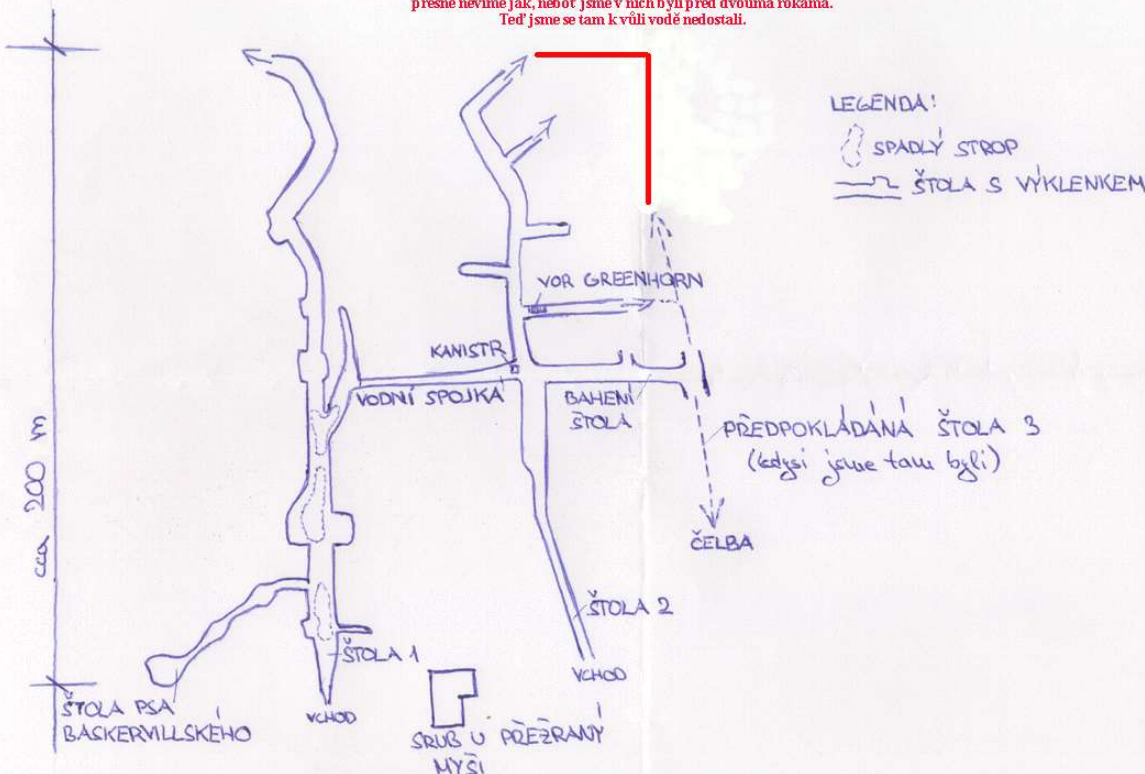 přesně nevíme jak, neboť jsme v nich byli před dvouma rokama.
Teď jsme se tam k vůli vodě nedostali.
LEGENDA:
SPADLÝ STROP
ŠTOLA S VÝKLENKEM
VOR GREENHORN
KANISTR
VODNÍ SPOJKA
BAHENÍ
ŠTOLA
PŘEDPOKLÁDANÁ ŠTOLA 3
(kdysi jsme tam byli)
cca 200 m
ČELBA
ŠTOLA 2
ŠTOLA 1
VCHOD
ŠTOLA PSA
BASKERVILLSKÉHO
VCHOD
SRUB U PŘEŽRANÝ
MYŠI